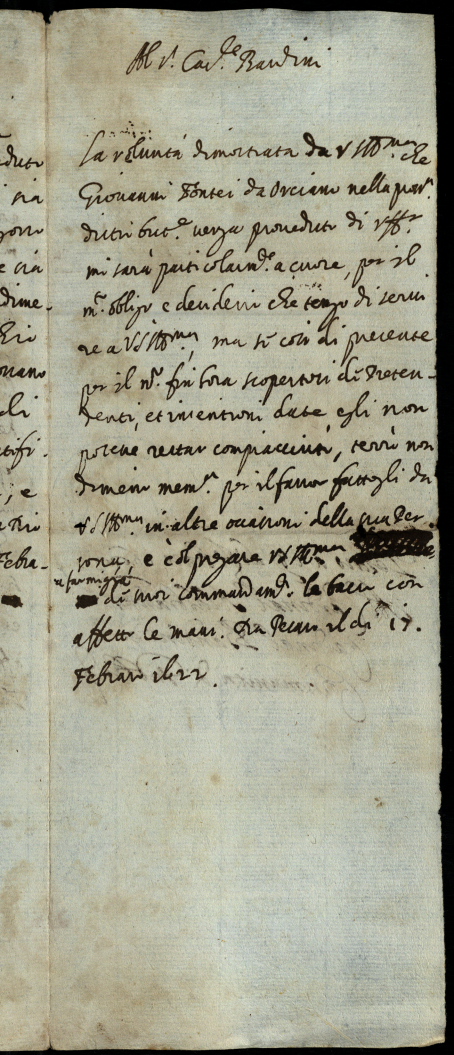 Al s.r Cav.re Bardini
La voluntà dimostrata da VS Ill.ma che
Giovanni Fontei da Orciano nella
distribut.e venga proveduto di
mi sarà particolarm.te a cuore, per il
m.o obligo e desiderio che tengo di servi
re a VS Ill.ma, ma se così di presente
per il n.o fin hora scopertosi de Preten-
denti, et intentioni date egli non
potesse restar compiacciuto, terrò non
dimeno mem.a per il favor fattogli da
VS Ill.ma in altre occasioni della sua Per
sona, e col pregare VS Ill.ma
a farmi gratia
de suoi commandam.ti le bacio con
affetto le mani. Da Pesaro il dì 17.
Febraro 1622.
dute
sia
e sia
dime-
ono
di
; e
Febra-